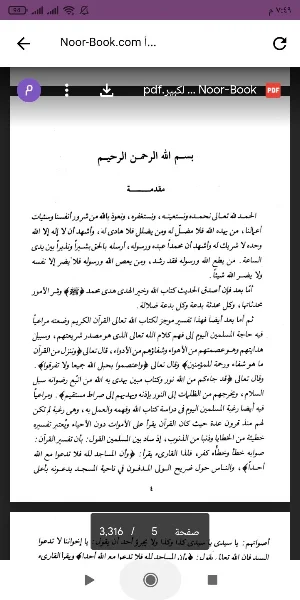 ٧:٤٩ م
Noor-Book.com أ
Noor-Book ... لكبير.pdf
PDF
بسم الله الرحمن الرحيم
مقدمة
الحمد لله تعالى نحمده ونستعينه، ونستغفره، ونعوذ بالله من شرور أنفسنا وسيئات
أعمالنا، من يهده الله فلا مضل له ومن يضلل فلا هادي له، وأشهد أن لا إله إلا الله
وحده لا شريك له وأشهد أن محمداً عبده ورسوله، أرسله بالحق بشيراً ونذيراً بين يدي
الساعة. من يطع الله ورسوله فقد رشد، ومن يعص الله ورسوله فلا يضر إلا نفسه
ولا يضر الله شيئاً.
أما بعد فإن أصدق الحديث كتاب الله وخير الهدي هدي محمد ﷺ وشر الأمور
محدثاتها، وكل محدثة بدعة وكل بدعة ضلالة.
ثم أما بعد أيضا فهذا تفسير موجز لكتاب الله تعالى القرآن الكريم وضعته مراعياً
فيه حاجة المسلمين اليوم إلى فهم كلام الله تعالى الذي هو مصدر شريعتهم، وسبيل
هدايتهم وهو عصمتهم من الأهواء وشفاؤهم من الأدواء، قال تعالى ﴿وننزل من القرآن
ما هو شفاء ورحمة للمؤمنين﴾ وقال تعالى ﴿واعتصموا بحبل الله جميعا ولا تفرقوا﴾.
وقال تعالى ﴿قد جاءكم من الله نور وكتاب مبين يهدي به الله من اتبع رضوانه سبل
السلام، ويخرجهم من الظلمات إلى النور بإذنه ويهديهم إلى صراط مستقيم﴾. ومراعياً
فيه أيضا رغبة المسلمين اليوم في دراسة كتاب الله وفهمه والعمل به، وهي رغبة لم تكن
لهم منذ قرون عدة حيث كان القرآن يقرأ على الأموات دون الأحياء ويعتبر تفسيره
خطيئة من الخطايا وذنبا من الذنوب، إذ ساد بين المسلمين القول: بأن تفسير القرآن:
صوابه خطأ وخطأه كفر، فلذا القارىء يقرأ: ﴿وأن المساجد لله فلا تدعوا مع الله
أحداً﴾، والناس حول ضريح الولي المدفون في ناحية المسجد يدعونه بأعلى
٤
صفحة 5 / 3,316
أصواتهم: يا سيدي يا سيدي كذا وكذا ولا يجرؤ أحد أن يقول: يا إخواننا لا تدعوا
السيد فإن الله تعالى يقول: ﴿وأن المساجد لله فلا تدعوا مع الله أحدا﴾ ويقرأ القارىء